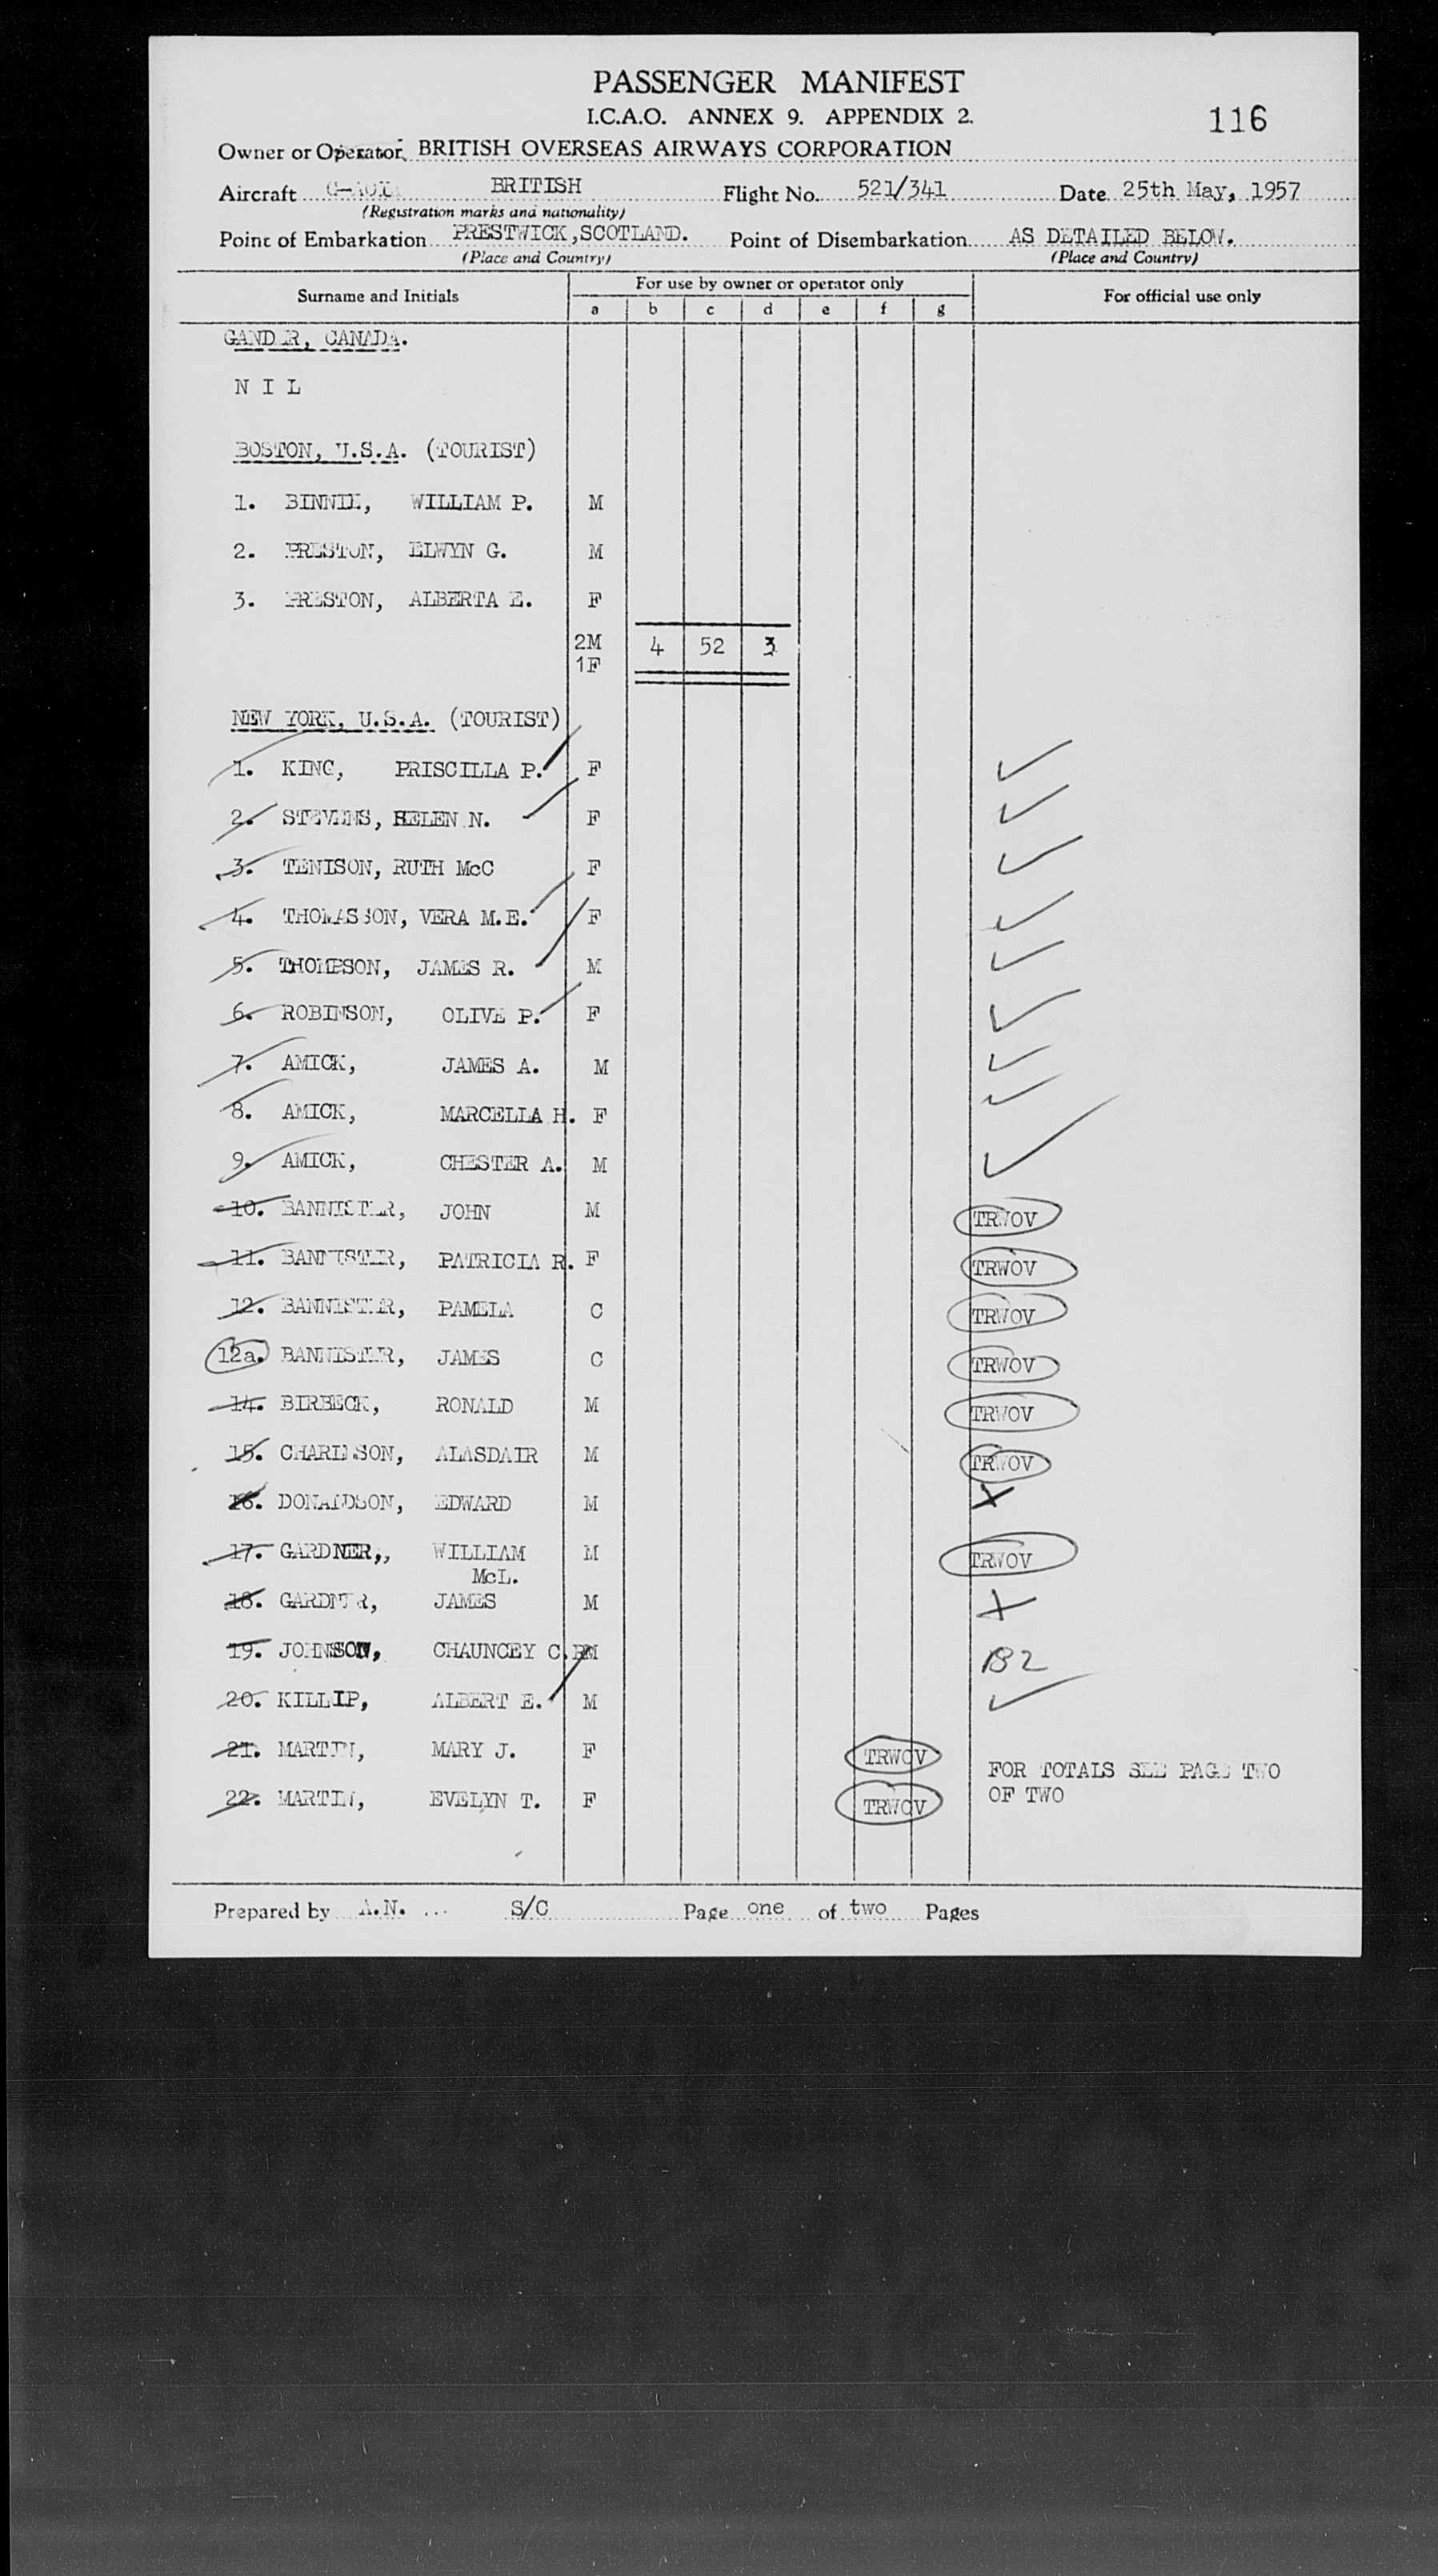 PASSENGER MANIFEST
I.C.A.O. ANNEX 9. APPENDIX 2.
116
Owner or Operator BRITISH OVERSEAS AIRWAYS CORPORATION
Aircraft BRITISH Flight No. 521/341 Date 25th May, 1957
(Registration marks and nationality)
Point of Embarkation PRESTWICK, SCOTLAND. Point of Disembarkation AS DETAILED BELOW.
(Place and Country) (Place and Country)
Surname and Initials For use by owner or operator only For official use only
a b c d e f g
GANDER, CANADA.
N I L
BOSTON, U.S.A. (TOURIST)
1. BINNIE, WILLIAM P. M
2. PRESTON, ELWYN G. M
3. PRESTON, ALBERTA E. F
2M 4 52 3
1F
NEW YORK, U.S.A. (TOURIST)
1. KING, PRISCILLA P. F ✓
2. STEVENS, HELEN N. F ✓
3. TENISON, RUTH McC F ✓
4. THOMASSON, VERA M.E. F ✓
5. THOMPSON, JAMES R. M ✓
6. ROBINSON, OLIVE P. F ✓
7. AMICK, JAMES A. M ✓
8. AMICK, MARCELLA H. F ✓
9. AMICK, CHESTER A. M ✓
10. BANNISTER, JOHN M TRWOV
11. BANNISTER, PATRICIA R. F TRWOV
12. BANNISTER, PAMELA C TRWOV
12a. BANNISTER, JAMES C TRWOV
14. BIRBECK, RONALD M TRWOV
15. CHARLESON, ALASDAIR M TRWOV
16. DONALDSON, EDWARD M X
17. GARDNER,, WILLIAM M TRWOV
McL.
18. GARDNER, JAMES M X
19. JOHNSON, CHAUNCEY C. M B2
20. KILLIP, ALBERT E. M ✓
21. MARTIN, MARY J. F TRWOV
22. MARTIN, EVELYN T. F TRWOV
FOR TOTALS SEE PAGE TWO
OF TWO
Prepared by A.N. ... S/C Page one of two Pages